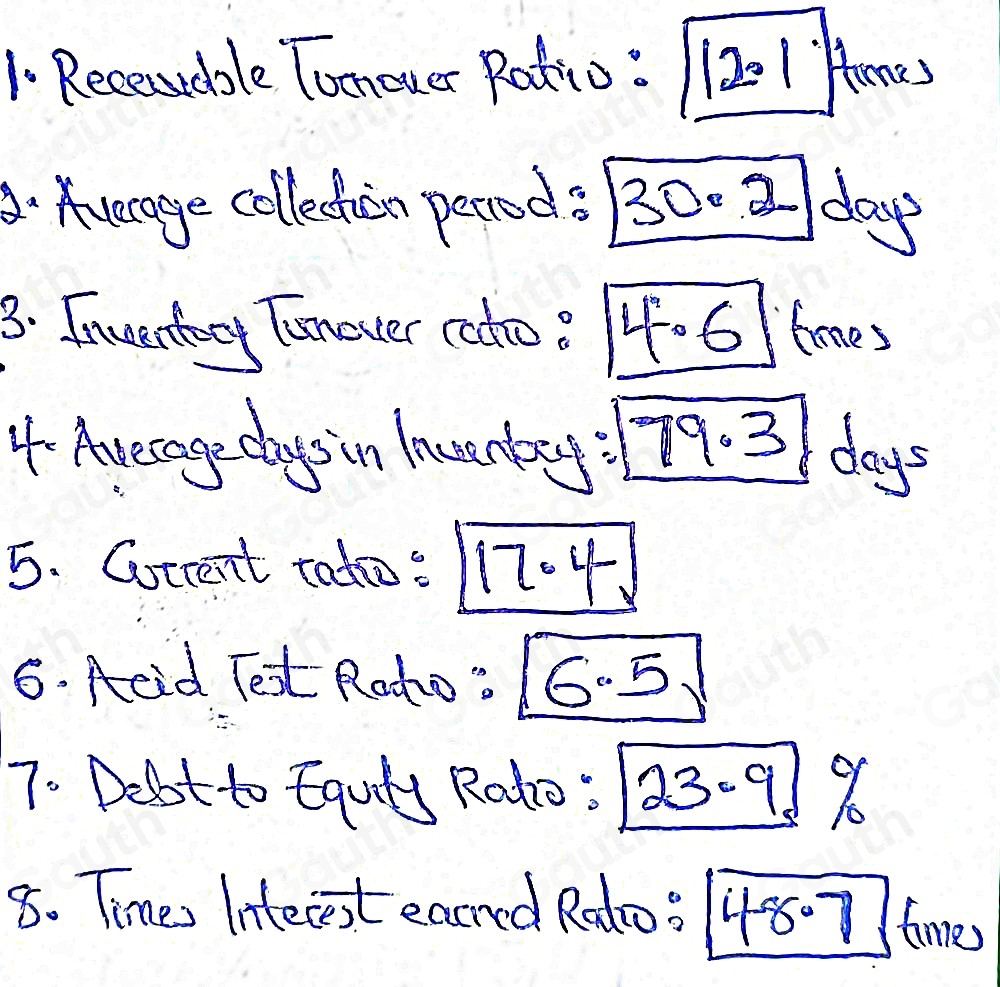 1. Receivable Turnover Ratio: 12.1 times
2. Average collection period: 30.2 days
3. Inventory Turnover ratio: 4.6 times
4. Average days in Inventory: 79.3 days
5. Current ratio: 17.4
6. Acid Test Ratio: 6.5
7. Debt to Equity Ratio: 23.9 %
8. Times Interest earned Ratio: 48.7 times